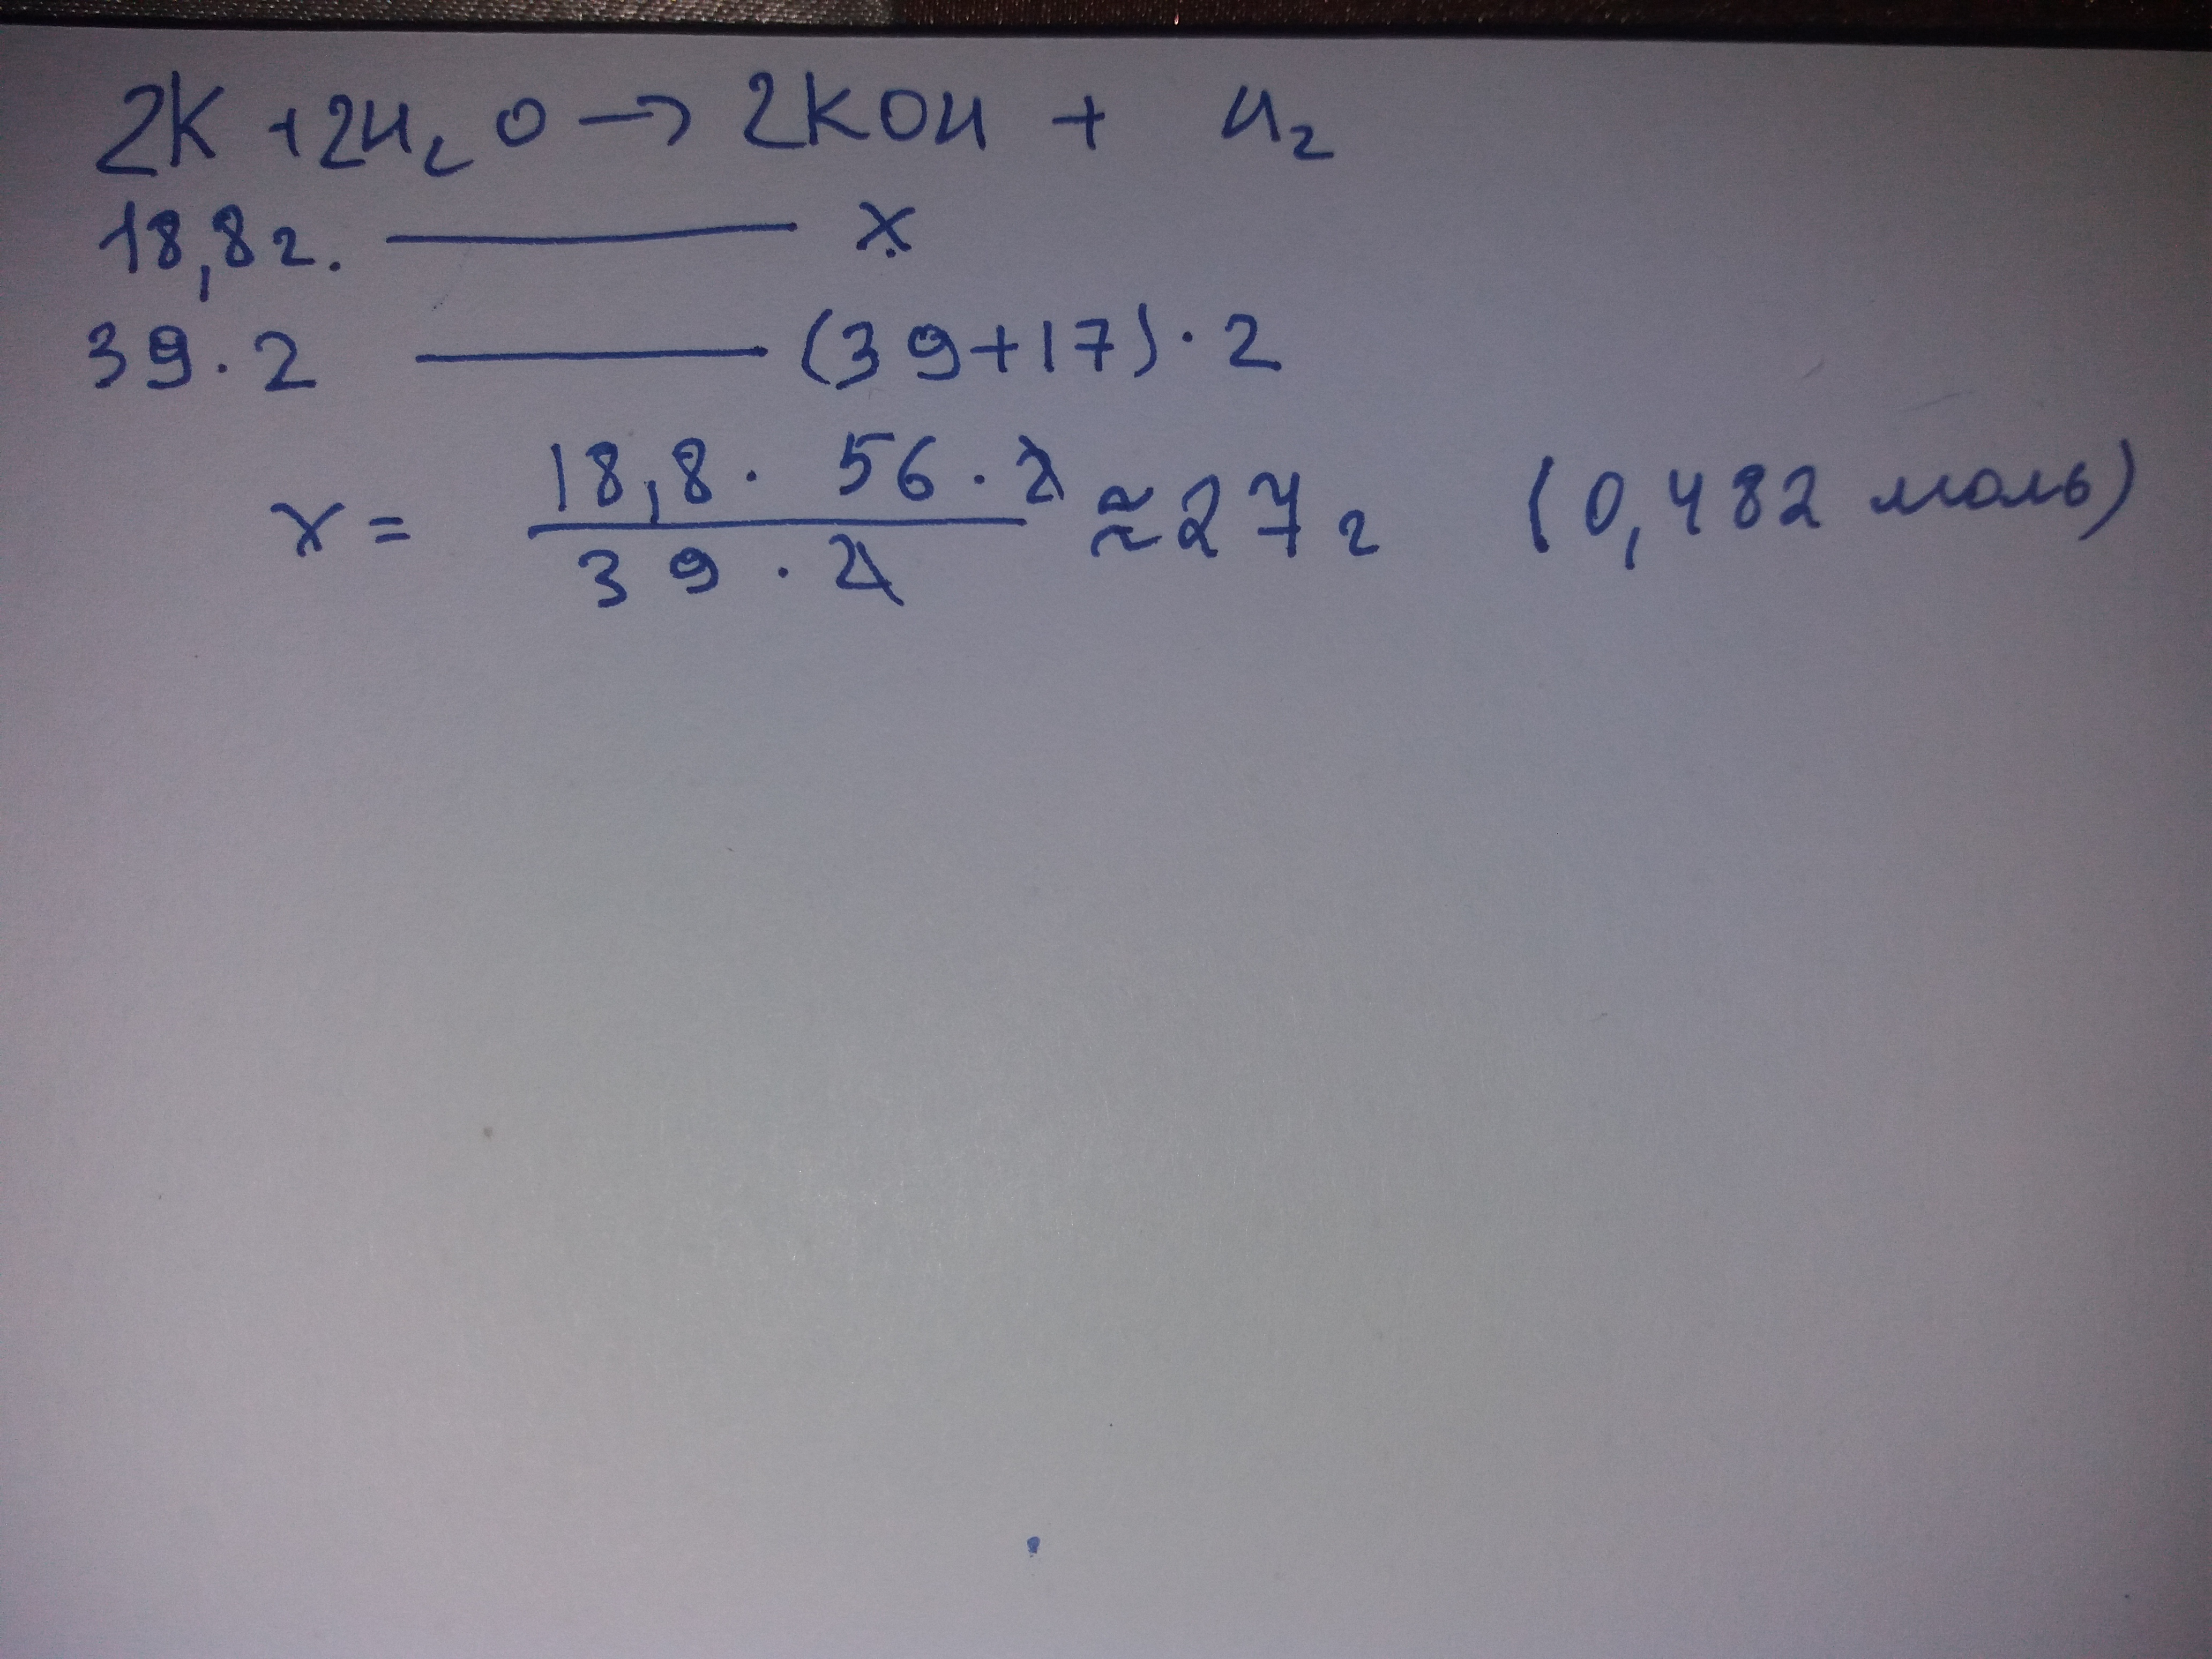 2K + 2H₂O → 2KOH + H₂
18,8г. ——— x
39·2 ——— (39+17)·2
x = (18,8 · 56 · 2)/(39 · 2) ≈ 27г (0,482 моль)